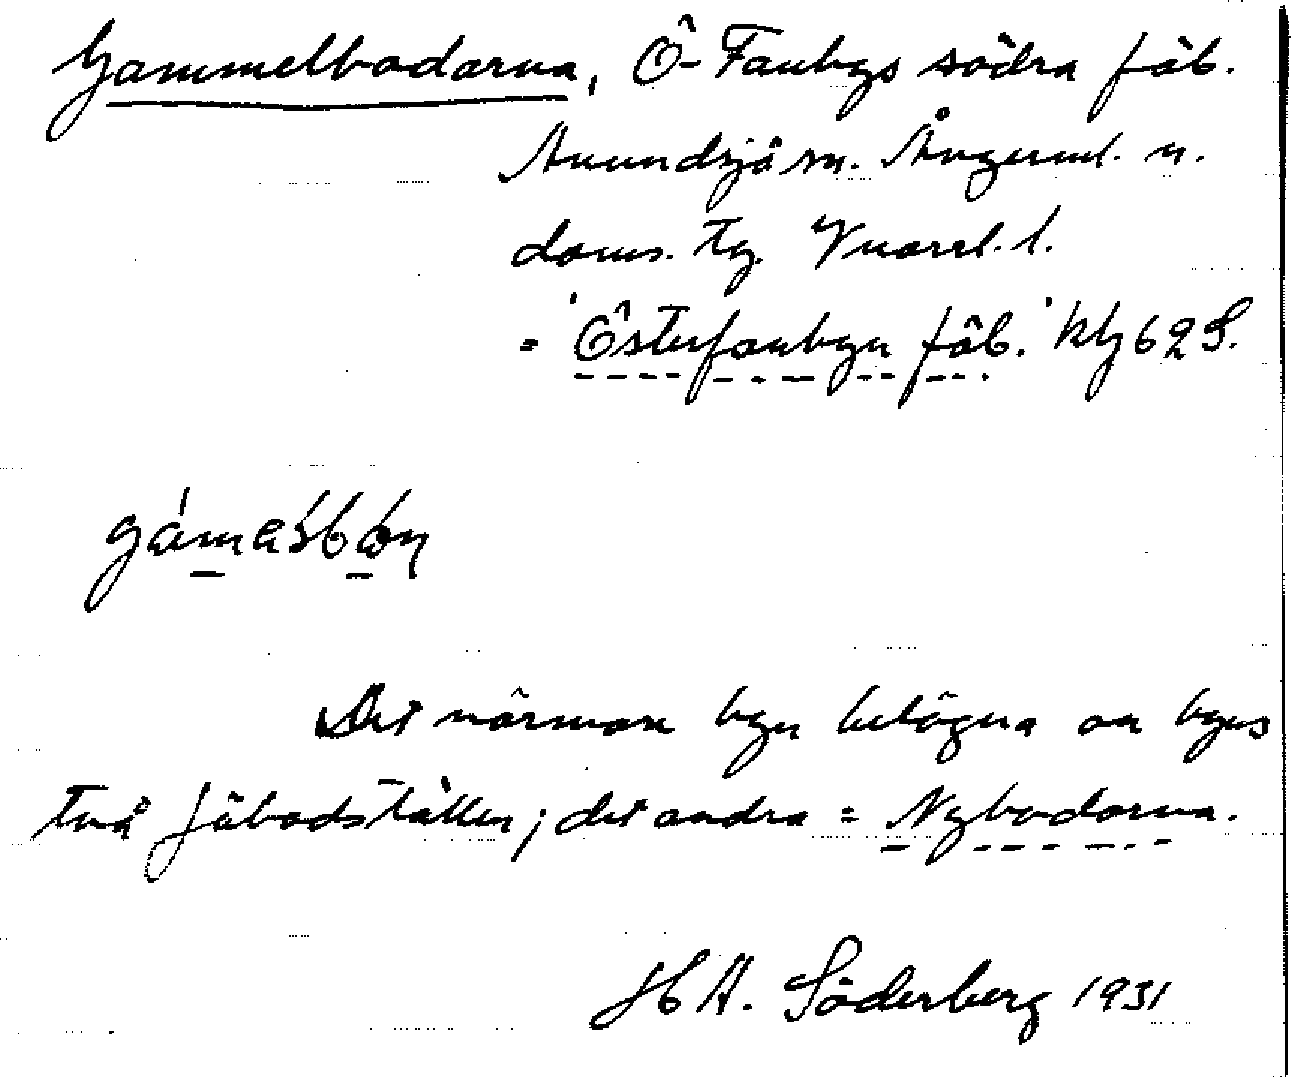 Gammelbodarna, Ö-Fanbyns södra fäb.
Anundsjö sn. Ångerml. n.
doms. Tg.
= 'Österfanbyn fäb.' Kbl 62 S.
Det närmare byn belägna av byns
två fäbodställen; det andra = Nybodarna.
H A. Söderberg 1931